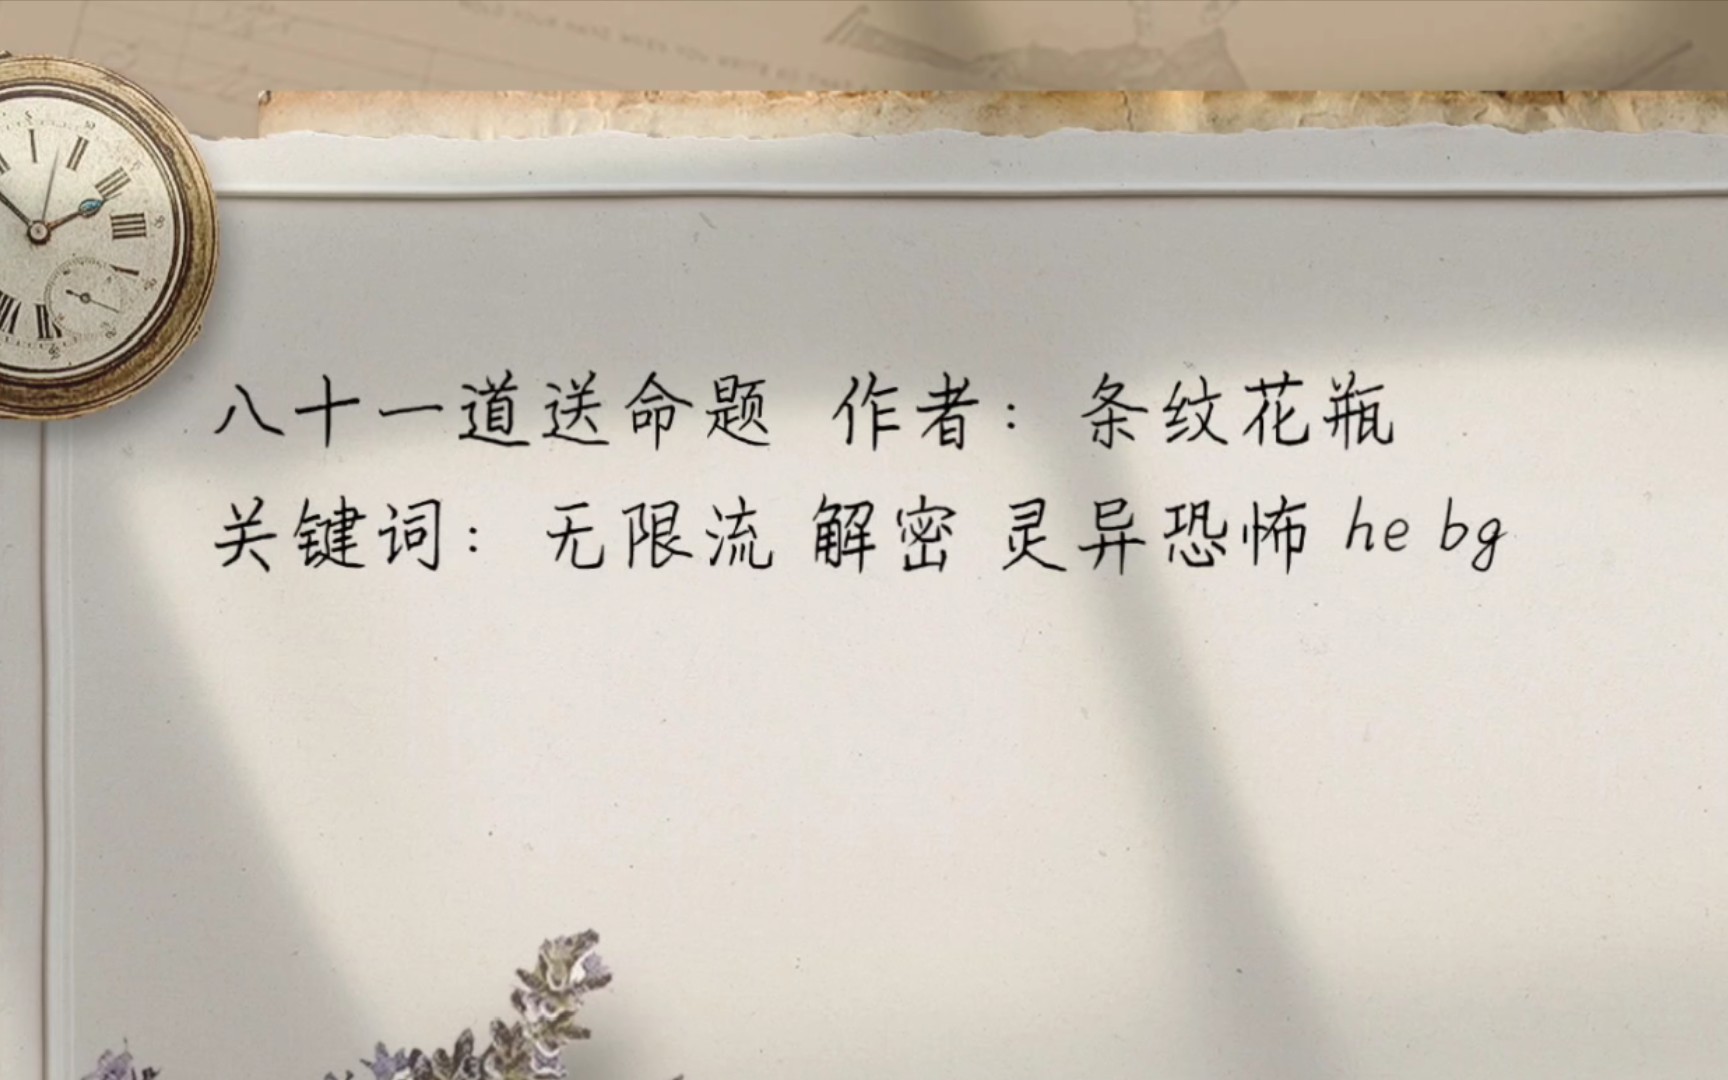 八十一道送命题 作者：条纹花瓶
关键词：无限流 解密 灵异恐怖 he bg